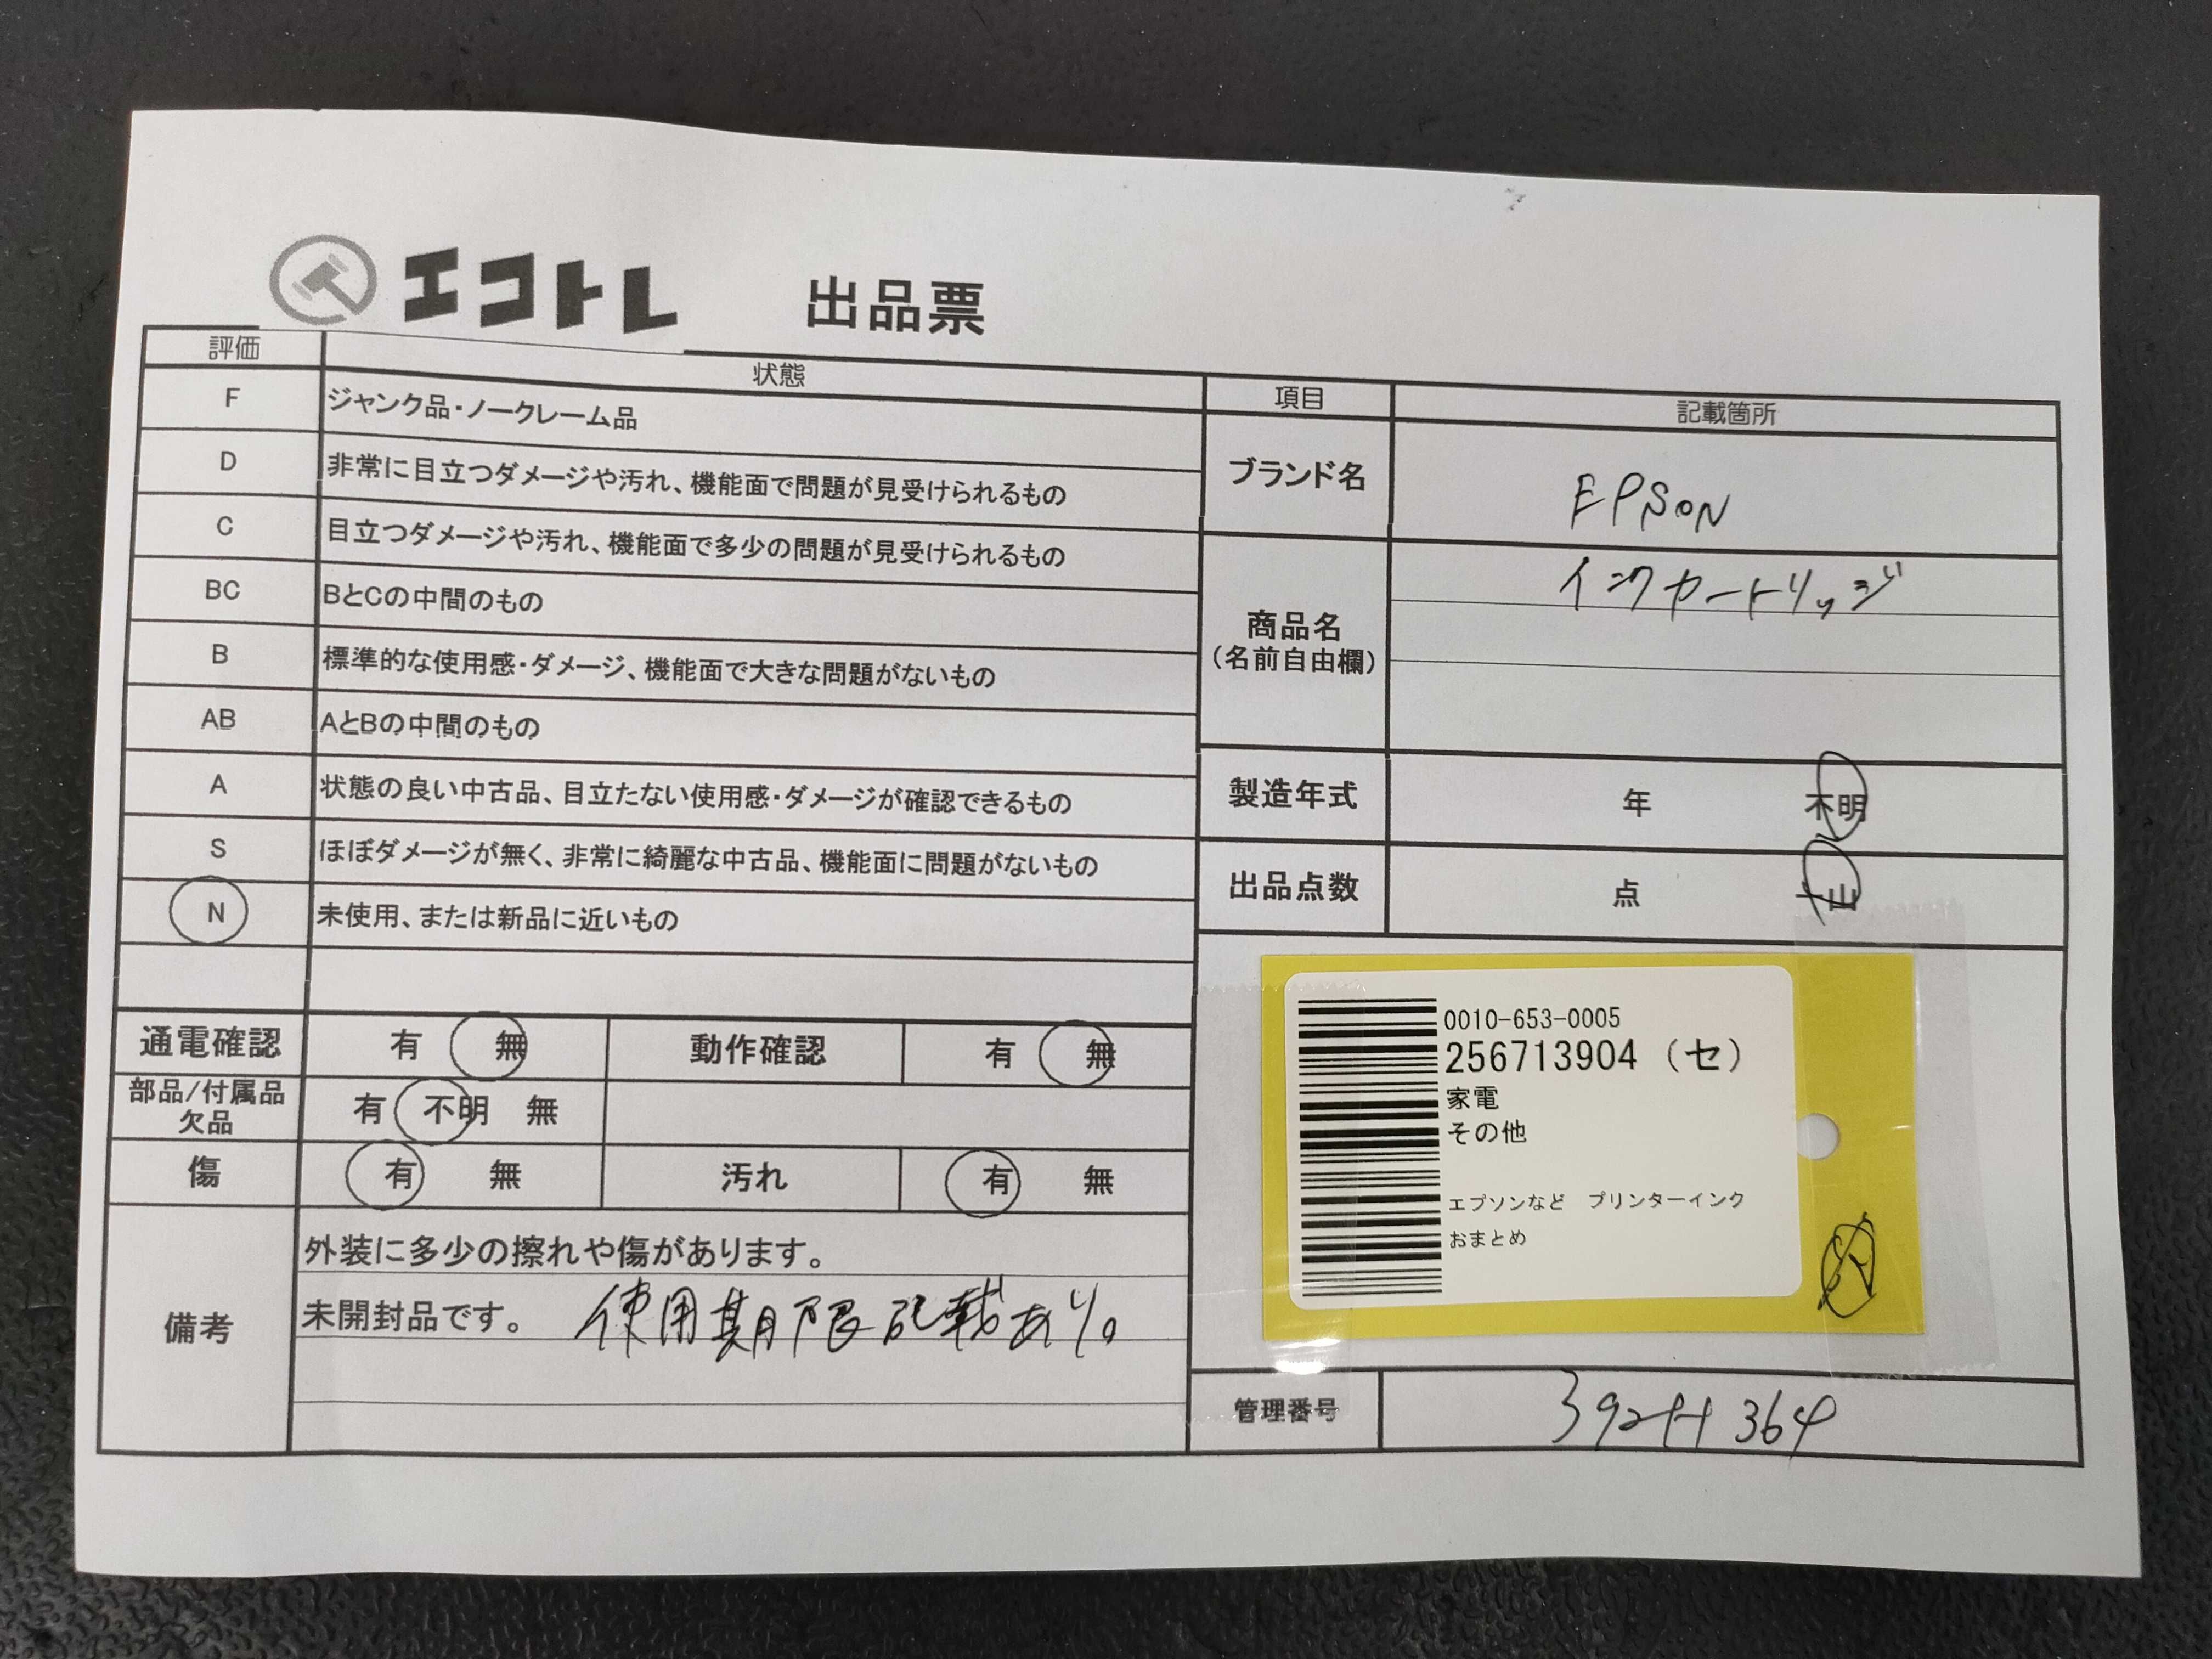 エコトレ 出品票
評価 状態
F ジャンク品・ノークレーム品
D 非常に目立つダメージや汚れ、機能面で問題が見受けられるもの
C 目立つダメージや汚れ、機能面で多少の問題が見受けられるもの
BC BとCの中間のもの
B 標準的な使用感・ダメージ、機能面で大きな問題がないもの
AB AとBの中間のもの
A 状態の良い中古品、目立たない使用感・ダメージが確認できるもの
S ほぼダメージが無く、非常に綺麗な中古品、機能面に問題がないもの
N 未使用、または新品に近いもの
通電確認 有 無 動作確認 有 無
部品/付属品
欠品
有 不明 無
傷 有 無 汚れ 有 無
備考
外装に多少の擦れや傷があります。
未開封品です。 使用期限記載あり。
項目 記載箇所
ブランド名 EPSON
商品名
(名前自由欄)
インクカートリッジ
製造年式 年 不明
出品点数 点 山
0010-653-0005
256713904 (セ)
家電
その他
エプソンなど プリンターインク
おまとめ
管理番号